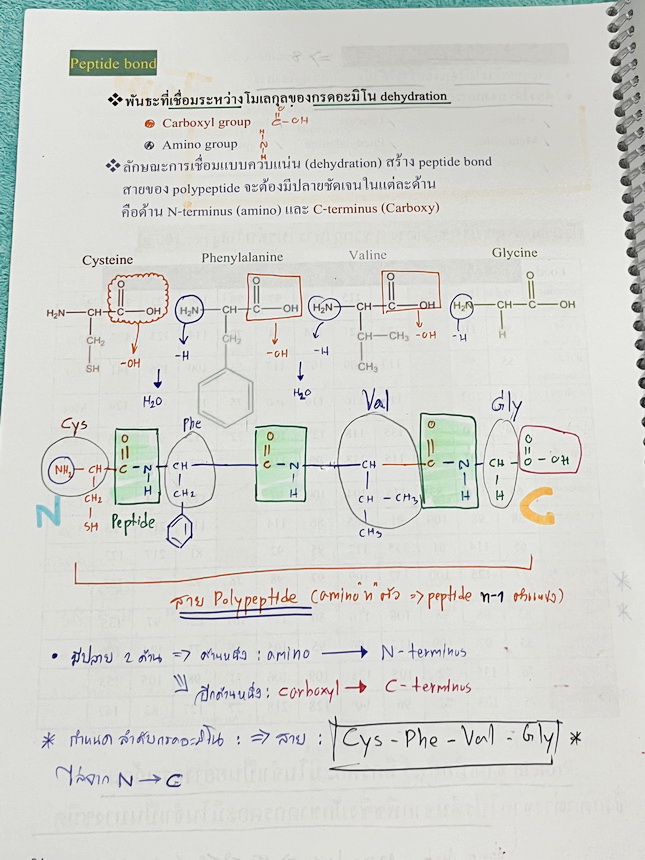 Peptide bond
❖พันธะที่เชื่อมระหว่างโมเลกุลของกรดอะมิโน dehydration
Carboxyl group
O
C-OH
Amino group
H
N
H
❖ลักษณะการเชื่อมแบบควบแน่น (dehydration) สร้าง peptide bond
สายของ polypeptide จะต้องมีปลายชัดเจนในแต่ละด้าน
คือด้าน N-terminus (amino) และ C-terminus (Carboxy)
Cysteine Phenylalanine Valine Glycine
O O O O
H₂N CH C OH H₂N CH C OH H₂N CH C OH H₂N CH C OH
CH₂ CH₂ CH—CH₃ H
SH CH₃
-OH -H -OH -H -OH -H
H₂O H₂O
Cys Phe Val Gly
O O O O
NH₂ - CH - C - N - CH - C - N - CH - C - N - CH - O - OH
CH₂ H CH₂ H CH - CH₃ H H
SH CH₃
N Peptide C
สาย Polypeptide (amino "n" ตัว => peptide n-1 ตำแหน่ง)
• มีปลาย 2 ด้าน => ด้านหนึ่ง : amino → N-terminus
อีกด้านหนึ่ง : carboxyl → C-terminus
* กำหนดลำดับกรดอะมิโน : => สาย : Cys - Phe - Val - Gly *
ไล่จาก N → C